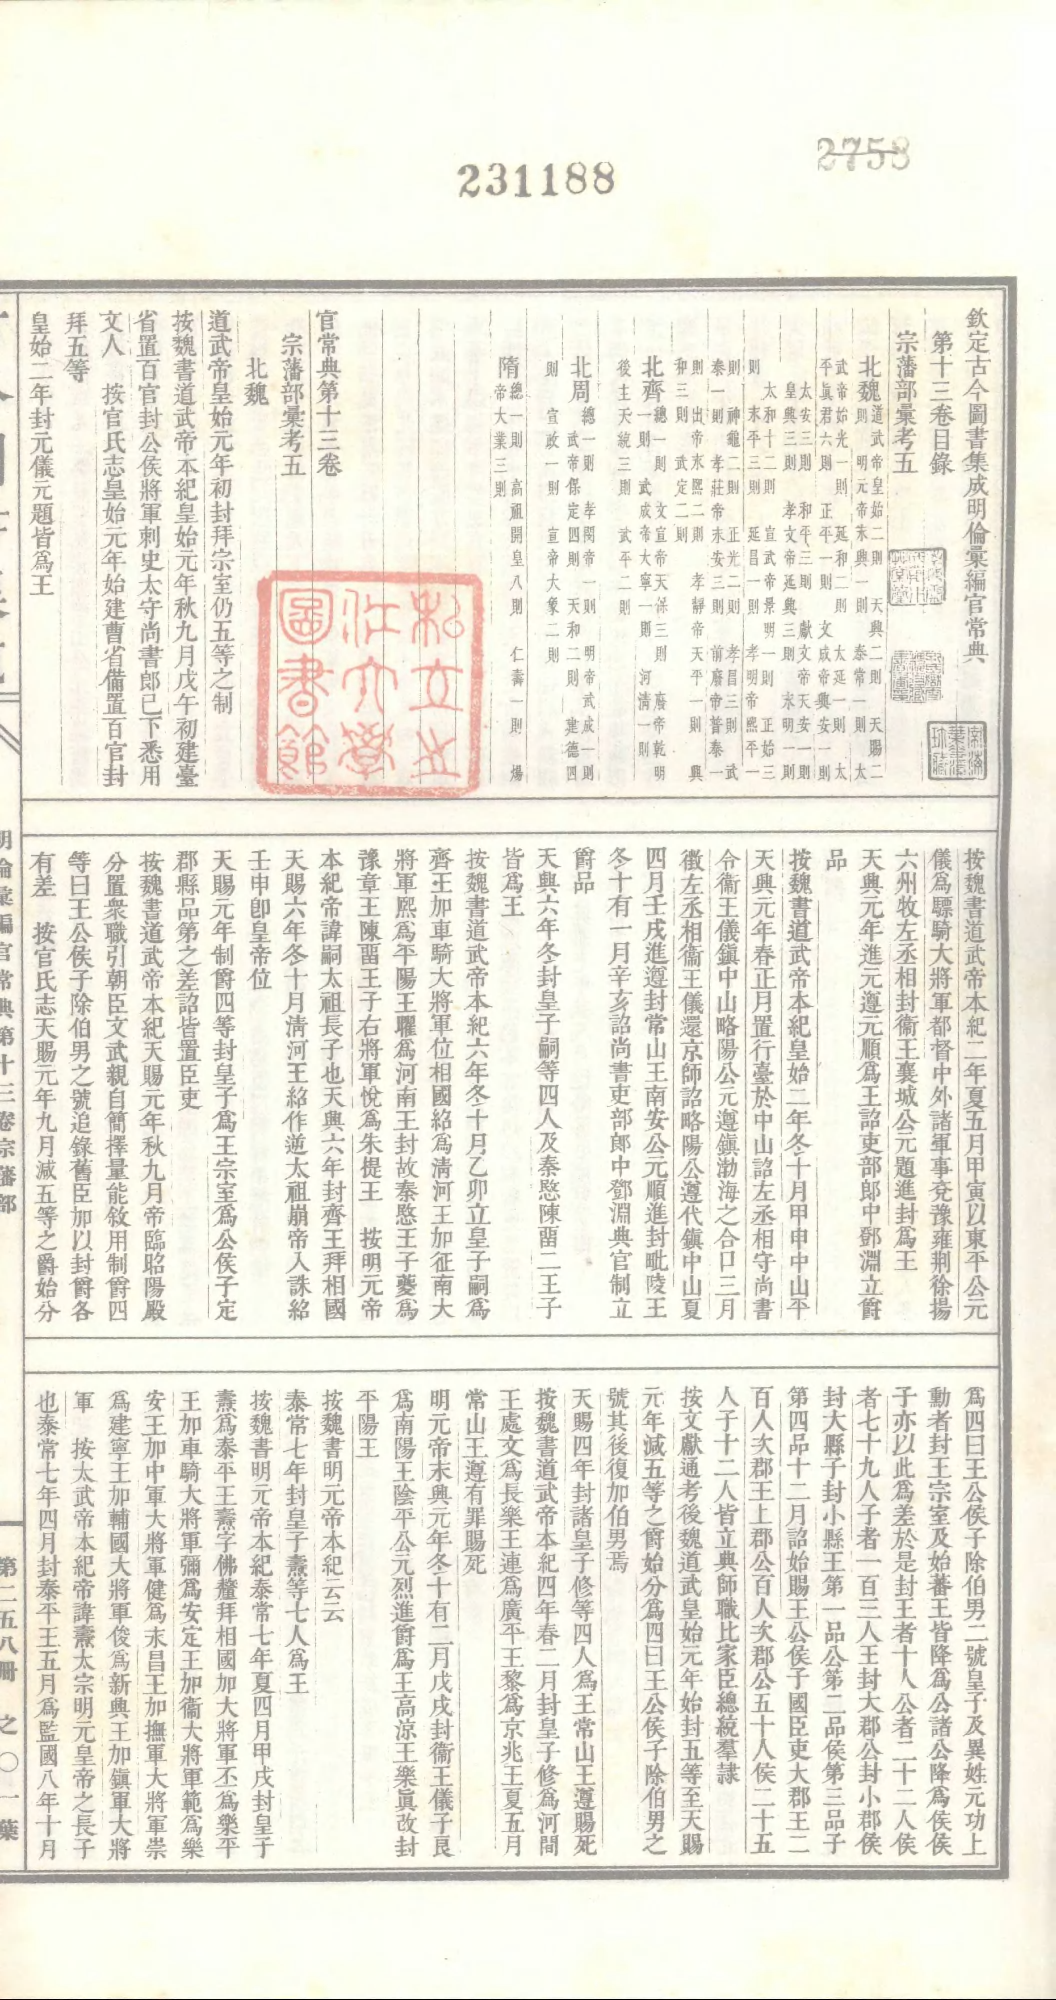 2758
231188
欽定古今圖書集成明倫彙編官常典
第十三卷目錄
宗藩部彙考五
北魏道武帝皇始二則 天興二則 天賜二
則 明元帝永興一則 泰常一則 太
武帝始光一則 延和二則 太延一則 太
平眞君六則 正平一則 文成帝興安一則
太安三則 和平三則 獻文帝天安一則
皇興三則 孝文帝延興三則 承明一則
太和十二則 宣武帝景明一則 正始三
則 永平三則 延昌一則 孝明帝熙平一
則 神龜二則 正光二則 孝昌三則 武
泰一則 孝莊帝永安三則 前廢帝普泰一
則 出帝永熙二則 孝靜帝天平一則 興
和三則 武定二則
北齊總一則 文宣帝天保三則 廢帝乾明
一則 武成帝大寧一則 河清一則
後主天統三則 武平二則
北周總一則 孝閔帝一則 明帝武成一則
武帝保定四則 天和二則 建德四
則 宣政一則 宣帝大象二則
隋總一則 高祖開皇八則 仁壽一則 煬
帝大業三則
私立北江大學圖書館
官常典第十三卷
宗藩部彙考五
北魏
道武帝皇始元年初封拜宗室仍五等之制
按魏書道武帝本紀皇始元年秋九月戊午初建臺
省置百官封公侯將軍刺史太守尚書郎已下悉用
文人 按官氏志皇始元年始建曹省備置百官封
拜五等
皇始二年封元儀元題皆爲王
按魏書道武帝本紀二年夏五月甲寅以東平公元
儀爲驃騎大將軍都督中外諸軍事兗豫雍荆徐揚
六州牧左丞相封衞王襄城公元題進封爲王
天興元年進元遵元順爲王詔吏部郎中鄧淵立爵
品
按魏書道武帝本紀皇始二年冬十月甲申中山平
天興元年春正月置行臺於中山詔左丞相守尚書
令衞王儀鎭中山略陽公元遵鎭渤海之合口三月
徵左丞相衞王儀還京師詔略陽公遵代鎭中山夏
四月壬戌進遵封常山王南安公元順進封毗陵王
冬十有一月辛亥詔尚書吏部郎中鄧淵典官制立
爵品
天興六年冬封皇子嗣等四人及秦愍陳畱二王子
皆爲王
按魏書道武帝本紀六年冬十月乙卯立皇子嗣爲
齊王加車騎大將軍位相國紹爲淸河王加征南大
將軍熙爲平陽王曜爲河南王封故秦愍王子夔爲
豫章王陳畱王子右將軍悅爲朱提王 按明元帝
本紀帝諱嗣太祖長子也天興六年封齊王拜相國
天賜六年冬十月淸河王紹作逆太祖崩帝入誅紹
壬申卽皇帝位
天賜元年制爵四等封皇子爲王宗至爲公侯子定
郡縣品第之差詔皆置臣吏
按魏書道武帝本紀天賜元年秋九月帝臨昭陽殿
分置衆職引朝臣文武親自簡擇量能敘用制爵四
等曰王公侯子除伯男之號追錄舊臣加以封爵各
有差 按官氏志天賜元年九月減五等之爵始分
爲四曰王公侯子除伯男二號皇子及異姓元功上
勳者封王宗室及始蕃王皆降爲公諸公降爲侯侯
子亦以此爲差於是封王者十人公者二十二人侯
者七十九人子者一百三人王封大郡公封小郡侯
封大縣子封小縣王第一品公第二品侯第三品子
第四品十二月詔始賜王公侯子國臣吏大郡王二
百人次郡王上郡公百人次郡公五十人侯二十五
人子十二人皆立典師職比家臣總統羣隸
按文獻通考後魏道武皇始元年始封五等至天賜
元年減五等之爵始分爲四曰王公侯子除伯男之
號其後復加伯男焉
天賜四年封諸皇子修等四人爲王常山王遵賜死
按魏書道武帝本紀四年春二月封皇子修爲河間
王處文爲長樂王連爲廣平王黎爲京兆王夏五月
常山王遵有罪賜死
明元帝永興元年冬十有二月戊戌封衞王儀子良
爲南陽王陰平公元烈進爵爲王高涼王樂眞改封
平陽王
按魏書明元帝本紀云云
泰常七年封皇子燾等七人爲王
按魏書明元帝本紀泰常七年夏四月甲戌封皇子
燾爲泰平王燾字佛釐拜相國加大將軍丕爲樂平
王加車騎大將軍彌爲安定王加衞大將軍範爲樂
安王加中軍大將軍健爲永昌王加撫軍大將軍崇
爲建寧王加輔國大將軍俊爲新興王加鎭軍大將
軍 按太武帝本紀帝諱燾太宗明元皇帝之長子
也泰常七年四月封泰平王五月爲監國八年十月
明倫彙編官常典第十三卷宗藩部
第二五八冊 之〇一葉